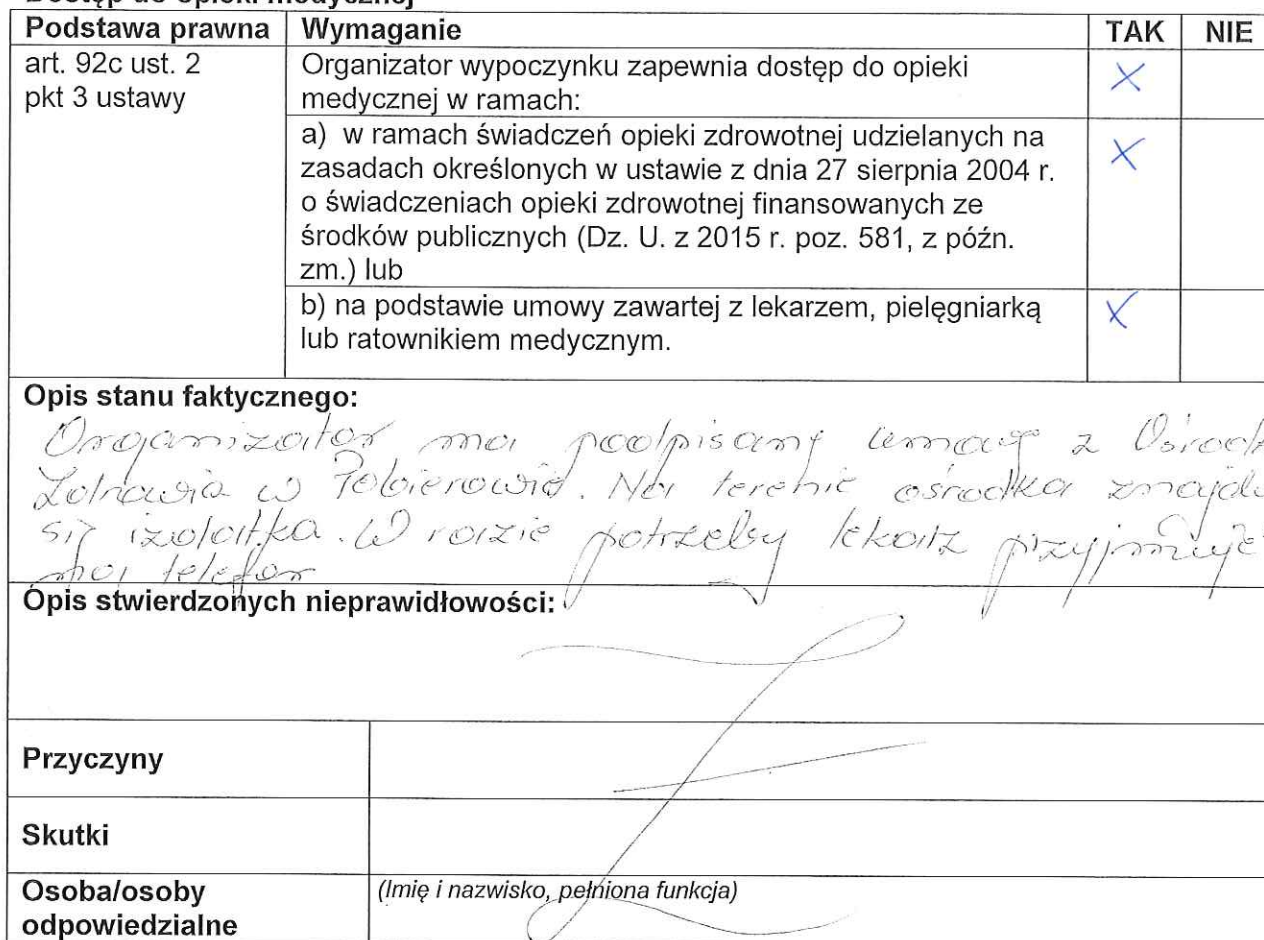 Dostęp do opieki medycznej
Podstawa prawna Wymaganie TAK NIE
art. 92c ust. 2 pkt 3 ustawy
Organizator wypoczynku zapewnia dostęp do opieki
medycznej w ramach:
X
a) w ramach świadczeń opieki zdrowotnej udzielanych na
zasadach określonych w ustawie z dnia 27 sierpnia 2004 r.
o świadczeniach opieki zdrowotnej finansowanych ze
środków publicznych (Dz. U. z 2015 r. poz. 581, z późn.
zm.) lub
X
b) na podstawie umowy zawartej z lekarzem, pielęgniarką
lub ratownikiem medycznym.
X
Opis stanu faktycznego:
Organizator ma podpisaną umowę z Ośrodk
Zdrowia w Pobierowie. Na terenie ośrodka znajdu
się izolatka. W razie potrzeby lekarz przyjmuje
na telefon
Opis stwierdzonych nieprawidłowości:
Przyczyny
Skutki
Osoba/osoby
odpowiedzialne
(Imię i nazwisko, pełniona funkcja)